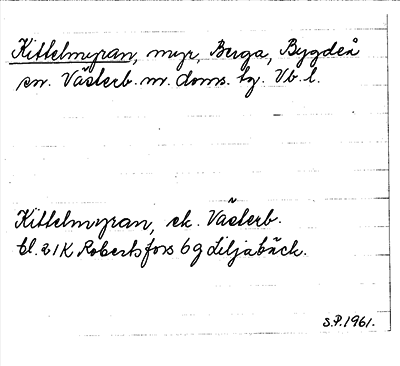 Kittelmyran, myr, Berga, Bygdeå
sn. Västerb. m. doms. tg. Vb. l.
Kittelmyran, ek. Västerb.
bl. 21K Robertsfors 6g Liljabäck.
S.P. 1961.